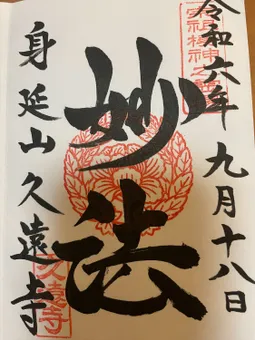 令和六年 九月十八日
妙法
身延山久遠寺
久遠寺